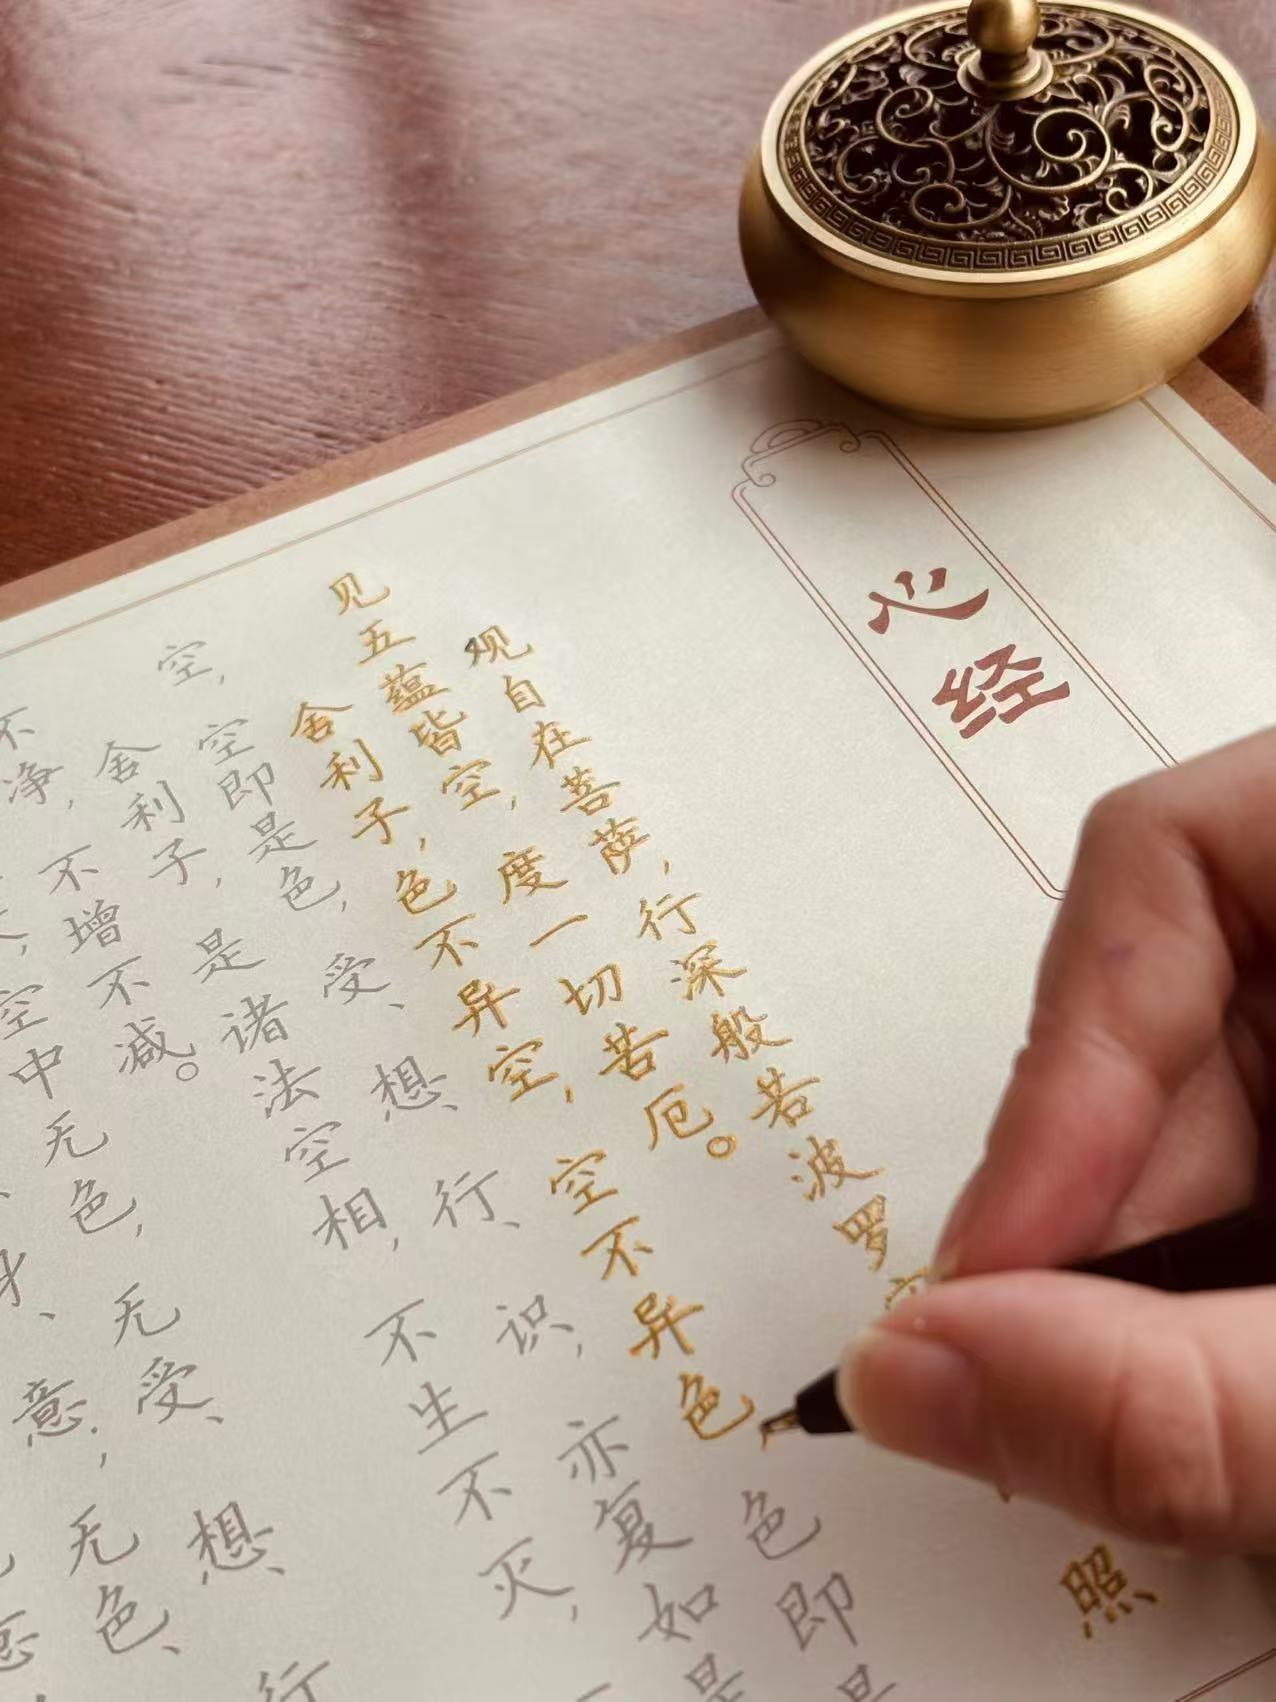 心经
观自在菩萨,行深般若波罗照
见五蕴皆空,度一切苦厄。
舍利子,色不异空,空不异色,色即是
空,空即是色,受、想、行、识,亦复如是
舍利子,是诸法空相,不生不灭,
不净,不增不减。
空中无色,无受、想、行
意,无色、